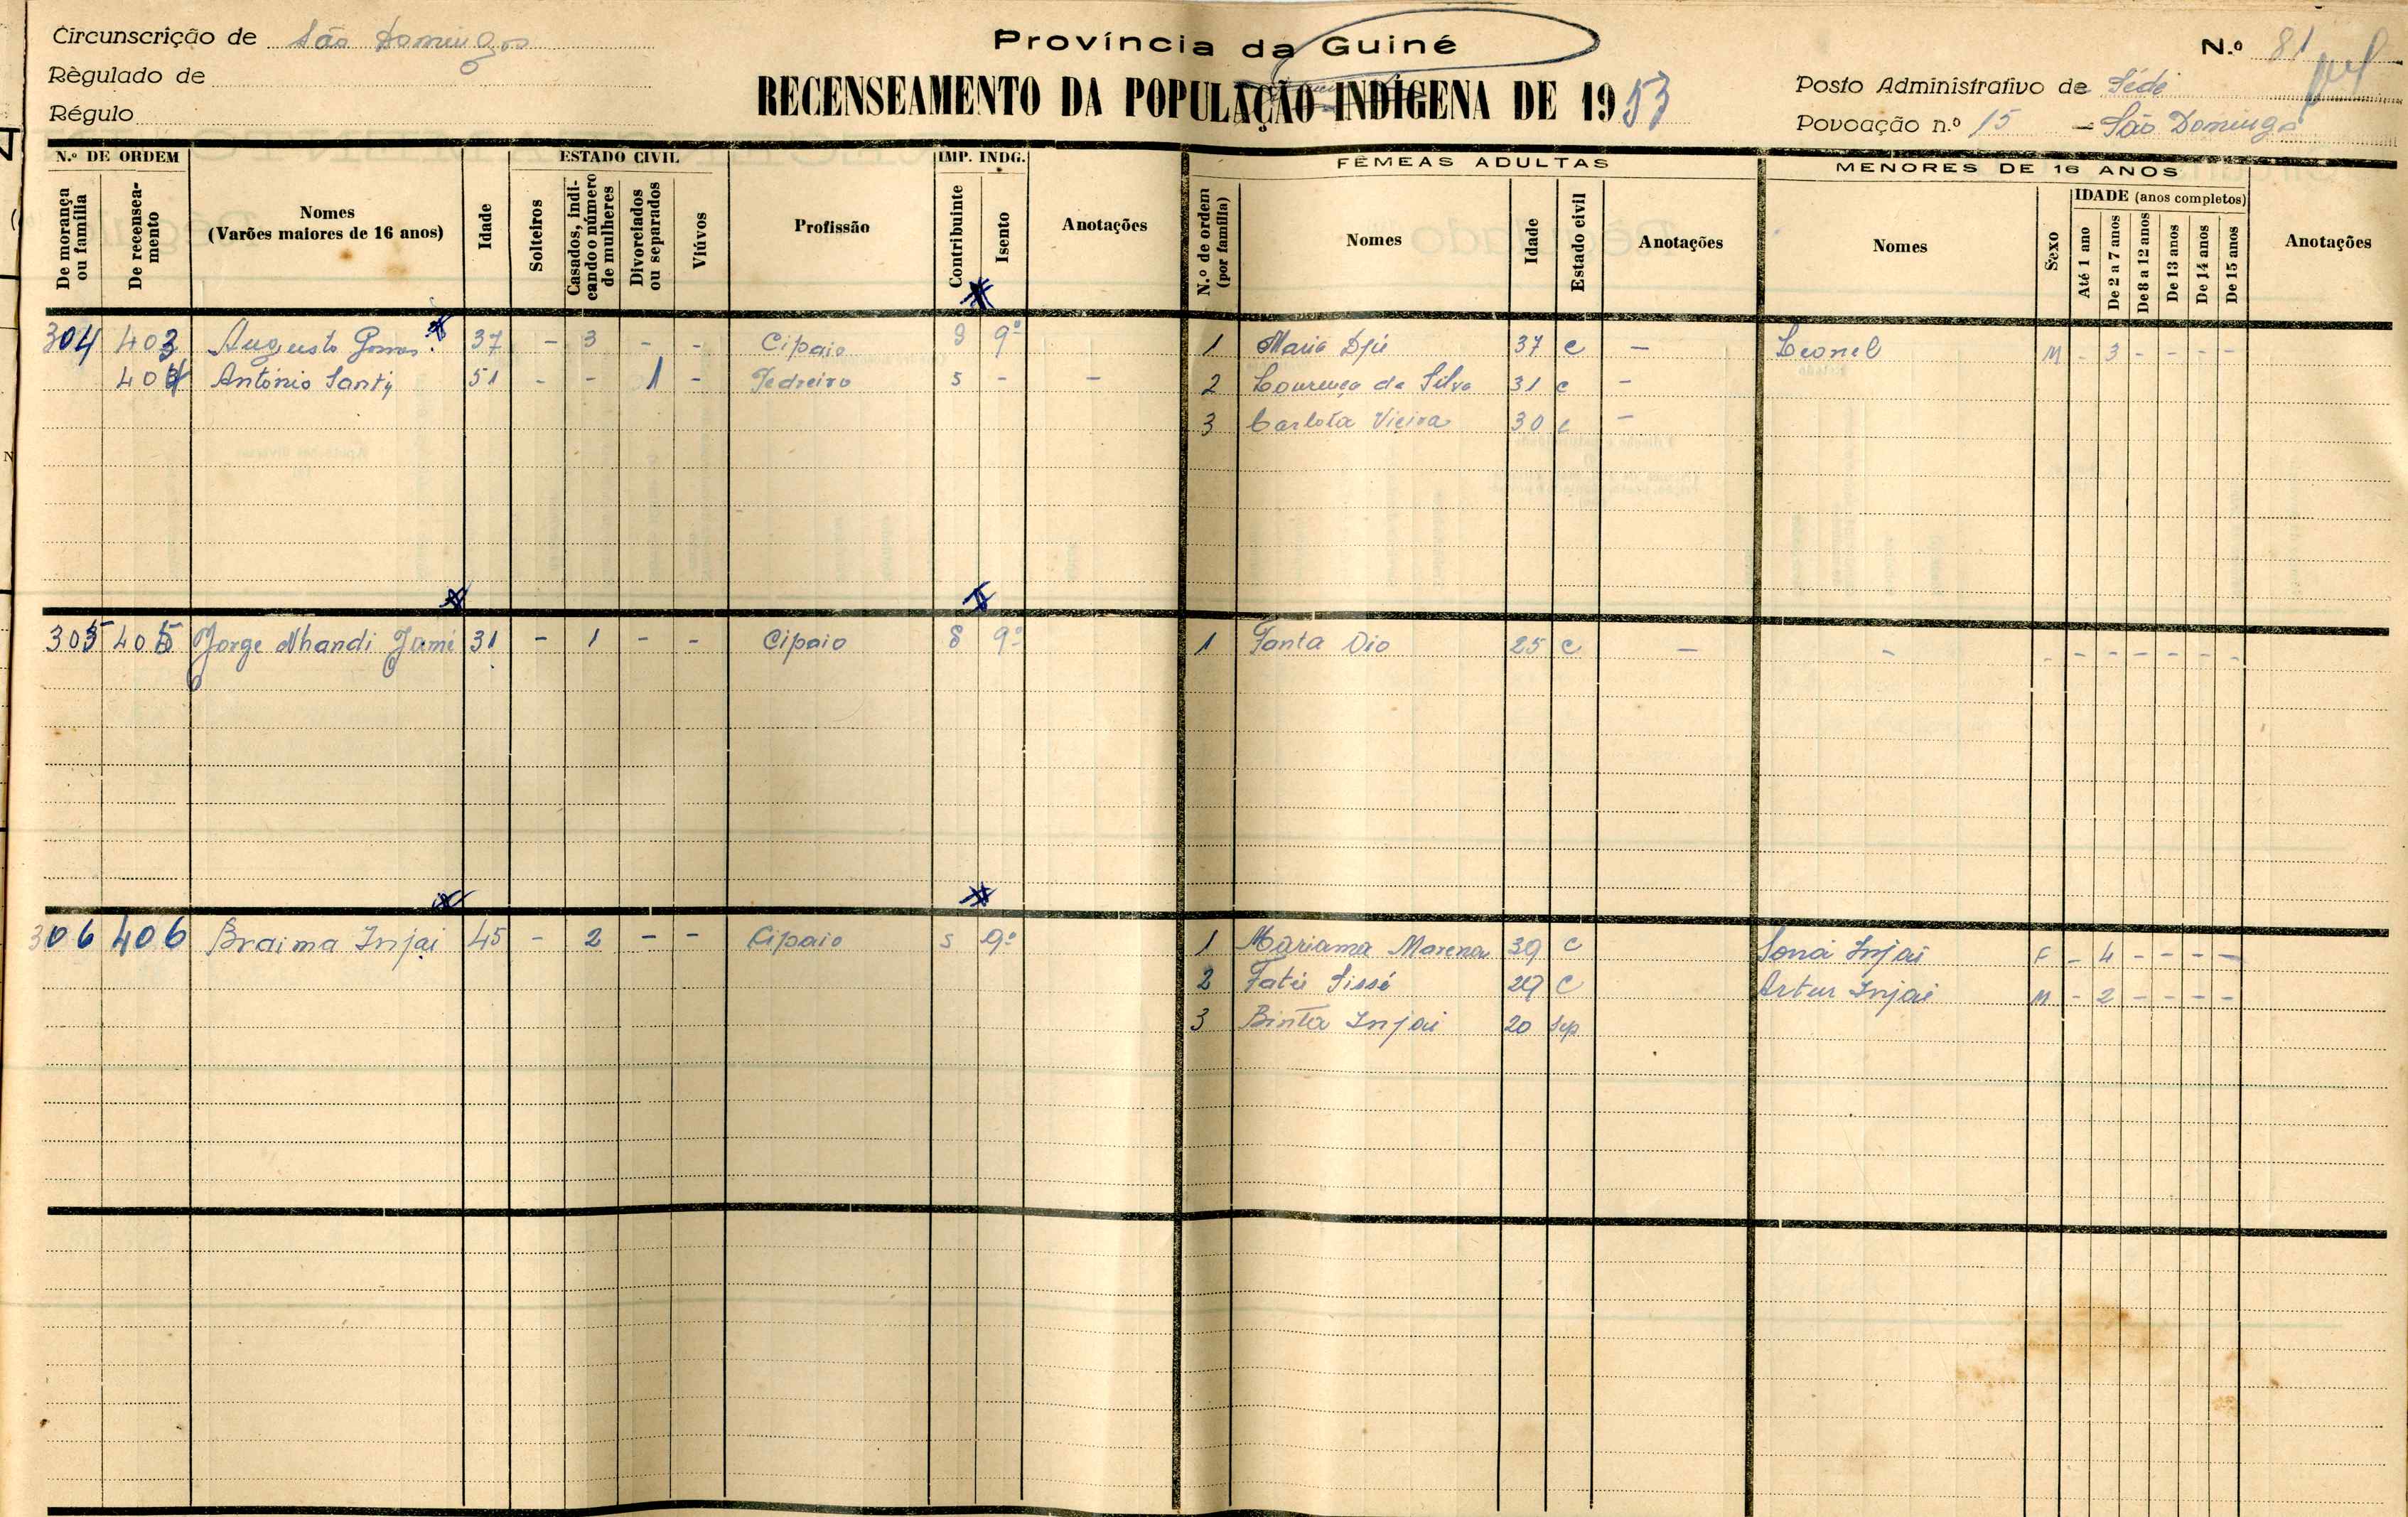 Circunscrição de São Domingos
Règulado de
Régulo
Província da Guiné
RECENSEAMENTO DA POPULAÇÃO INDÍGENA DE 1953
N.º 81
Posto Administrativo de Séde
Povoação n.º 15 - São Domingos
N.º DE ORDEM
De morança ou família
De recenseamento
Nomes
(Varões maiores de 16 anos)
Idade
ESTADO CIVIL
Solteiros
Casados, indicando o número de mulheres
Divorciados ou separados
Viúvos
Profissão
IMP. INDG.
Contribuinte
Isento
Anotações
FÊMEAS ADULTAS
N.º de ordem (por família)
Nomes
Idade
Estado civil
Anotações
MENORES DE 16 ANOS
Nomes
Sexo
IDADE (anos completos)
Até 1 ano
De 2 a 7 anos
De 8 a 12 anos
De 13 anos
De 14 anos
De 15 anos
Anotações
304 403 Augusto Gomes 37 - 3 - - Cipaio 9º 1 Maria Djú 37 c - Leonel M - 3 - - - -
404 António Santy 51 - - 1 - Pedreiro s - - 2 Lourença da Silva 31 c -
3 Carlota Vieira 30 c -
305 405 Jorge Nhandi Jamé 31 - 1 - - Cipaio 8 9º 1 Fanta Dio 25 c - - - - - - - - -
306 406 Braima Injai 45 - 2 - - Cipaio s 9º 1 Mariama Marena 39 c Soná Injai F - 4 - - - -
2 Fatú Sissé 29 C Artur Injai M - 2 - - - -
3 Binta Injai 20 sep